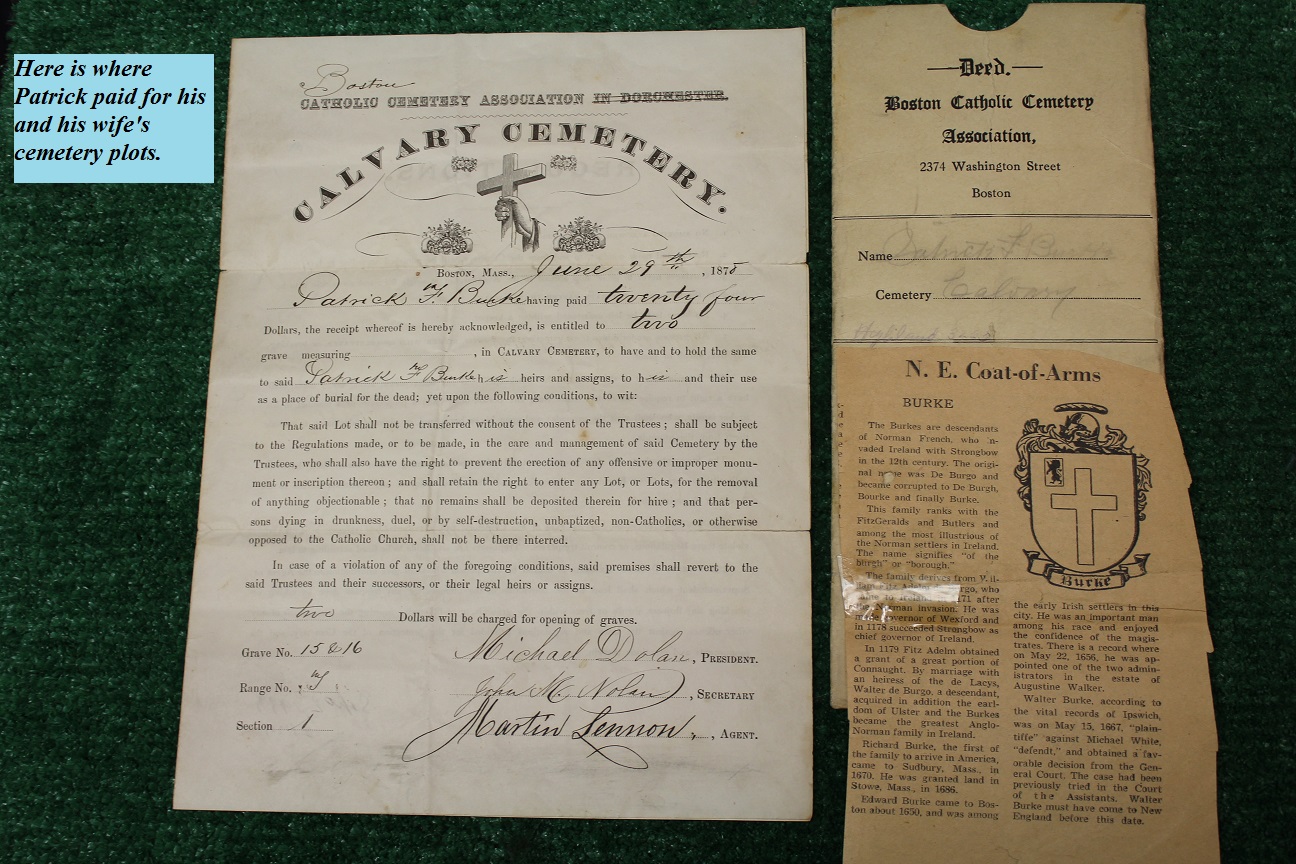 Here is where
Patrick paid for his
and his wife's
cemetery plots.
Boston
CATHOLIC CEMETERY ASSOCIATION IN DORCHESTER.
CALVARY CEMETERY.
BOSTON, MASS., June 29th, 1878
Patrick F Burke having paid twenty four
Dollars, the receipt whereof is hereby acknowledged, is entitled to two
grave measuring , in CALVARY CEMETERY, to have and to hold the same
to said Patrick F Burke his heirs and assigns, to his and their use
as a place of burial for the dead; yet upon the following conditions, to wit:
That said Lot shall not be transferred without the consent of the Trustees; shall be subject
to the Regulations made, or to be made, in the care and management of said Cemetery by the
Trustees, who shall also have the right to prevent the erection of any offensive or improper monu-
ment or inscription thereon; and shall retain the right to enter any Lot, or Lots, for the removal
of anything objectionable; that no remains shall be deposited therein for hire; and that per-
sons dying in drunkness, duel, or by self-destruction, unbaptized, non-Catholics, or otherwise
opposed to the Catholic Church, shall not be there interred.
In case of a violation of any of the foregoing conditions, said premises shall revert to the
said Trustees and their successors, or their legal heirs or assigns.
two Dollars will be charged for opening of graves.
Grave No. 15 & 16 Michael Dolan, PRESIDENT.
Range No. John M. Nolan, SECRETARY
Section 1 Martin Lennon, AGENT.
Deed.
Boston Catholic Cemetery
Association,
2374 Washington Street
Boston
Name Patrick F Burke
Cemetery Calvary
Highland
N. E. Coat-of-Arms
BURKE
The Burkes are descendants
of Norman French, who n-
vaded Ireland with Strongbow
in the 12th century. The origi-
nal name was De Burgo and
became corrupted to De Burgh,
Bourke and finally Burke.
This family ranks with the
FitzGeralds and Butlers and
among the most illustrious of
the Norman settlers in Ireland.
The name signifies "of the
burgh" or "borough."
The family derives from Wil-
Adelm, who
to Ireland 1171 after
the Norman invasion. He was
made governor of Wexford and
in 1178 succeeded Strongbow as
chief governor of Ireland.
In 1179 Fitz Adelm obtained
a grant of a great portion of
Connaught. By marriage with
an heiress of the de Lacys,
Walter de Burgo, a descendant,
acquired in addition the earl-
dom of Ulster and the Burkes
became the greatest Anglo-
Norman family in Ireland.
Richard Burke, the first of
the family to arrive in America,
came to Sudbury, Mass., in
1670. He was granted land in
Stowe, Mass., in 1686.
Edward Burke came to Bos-
ton about 1650, and was among
Burke
the early Irish settlers in this
city. He was an important man
among his race and enjoyed
the confidence of the magis-
trates. There is a record where
on May 22, 1656, he was ap-
pointed one of the two admin-
istrators in the estate of
Augustine Walker.
Walter Burke, according to
the vital records of Ipswich,
was on May 15, 1667, "plain-
tiffe" against Michael White,
"defendt," and obtained a fav-
orable decision from the Gen-
eral Court. The case had been
previously tried in the Court
of the Assistants. Walter
Burke must have come to New
England before this date.